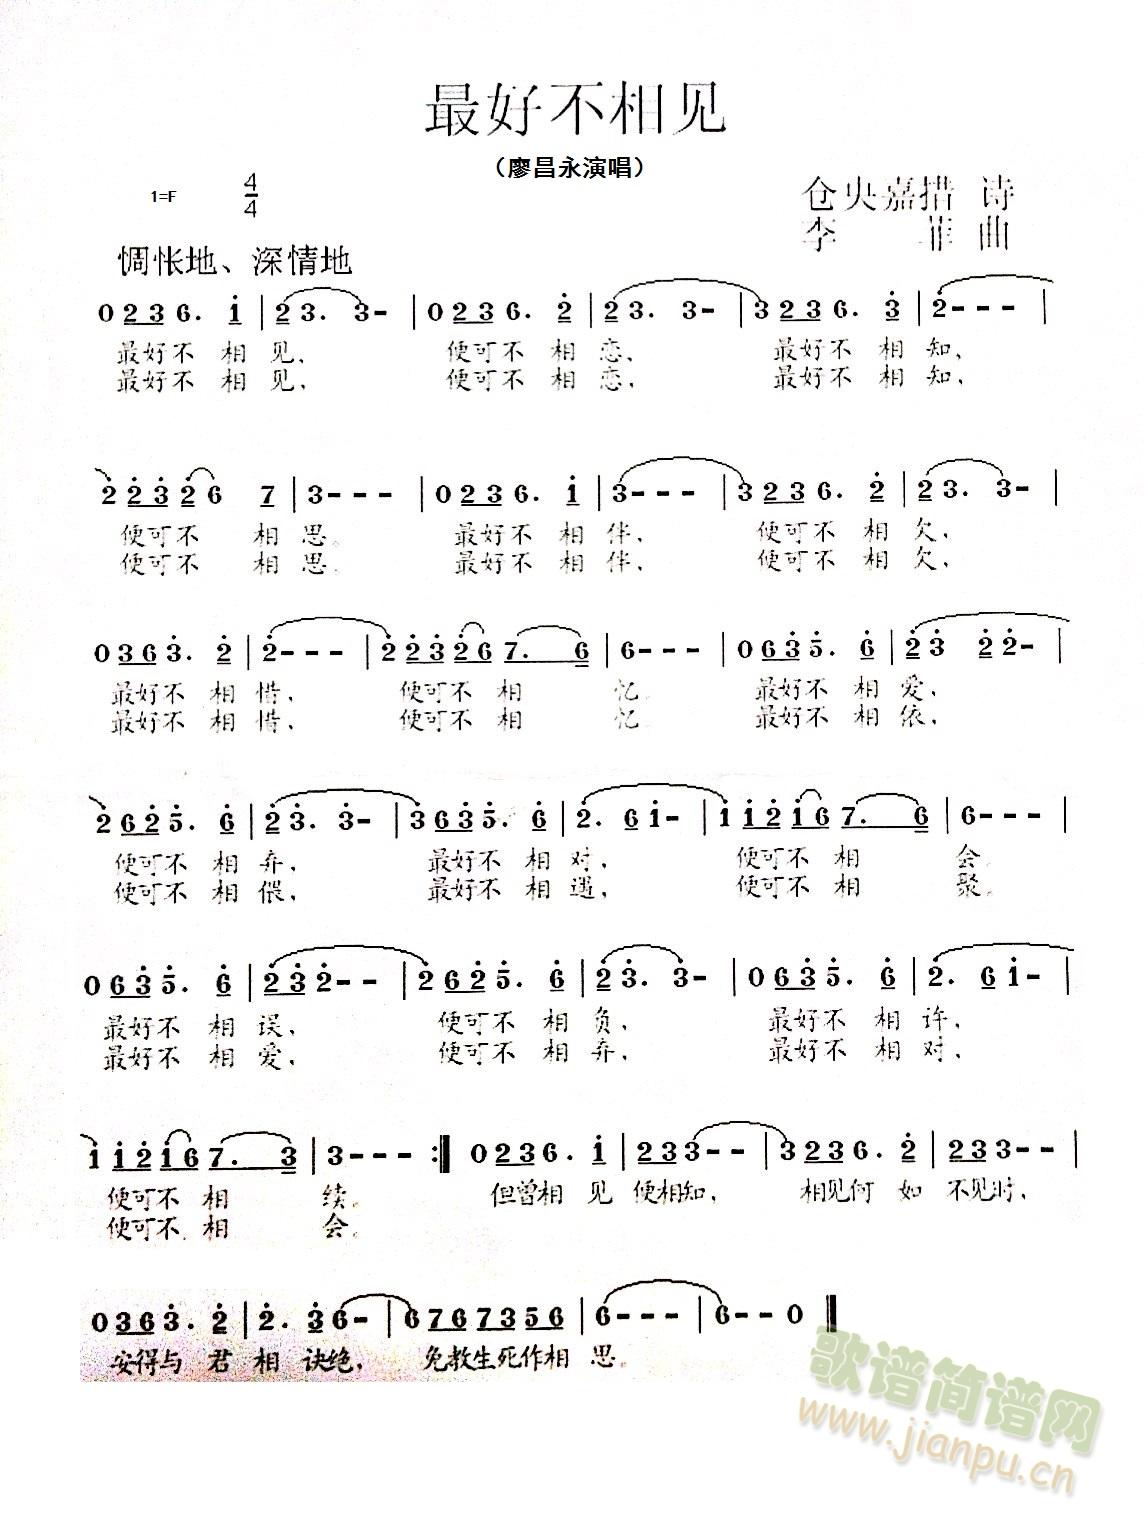 最好不相见
（廖昌永演唱）
1=F 4/4
仓央嘉措 诗
李菲 曲
惆怅地、深情地
0 2 3 6. i | 2 3. 3 - | 0 2 3 6. 2 | 2 3. 3 - | 3 2 3 6. 3 | 2 - - - |
最好不 相 见， 便可不 相 恋， 最好不 相 知，
最好不 相 见， 便可不 相 恋， 最好不 相 知，
2 2 3 2 6 7 | 3 - - - | 0 2 3 6. i | 3 - - - | 3 2 3 6. 2 | 2 3. 3 - |
便可不 相 思。 最好不 相 伴， 便可不 相 欠，
便可不 相 思。 最好不 相 伴， 便可不 相 欠，
0 3 6 3. 2 | 2 - - - | 2 2 3 2 6 7. 6 | 6 - - - | 0 6 3 5. 6 | 2 3 2 2 - |
最好不 相 惜， 便可不 相 忆。 最好不 相 爱，
最好不 相 惜， 便可不 相 忆。 最好不 相 依，
2 6 2 5. 6 | 2 3. 3 - | 3 6 3 5. 6 | 2. 6 i - | i i 2 i 6 7. 6 | 6 - - - |
便可不 相 弃， 最好不 相 对， 便可不 相 会。
便可不 相 偎， 最好不 相 遇， 便可不 相 聚。
0 6 3 5. 6 | 2 3 2 - - | 2 6 2 5. 6 | 2 3. 3 - | 0 6 3 5. 6 | 2. 6 i - |
最好不 相 误， 便可不 相 负， 最好不 相 许，
最好不 相 爱， 便可不 相 弃， 最好不 相 对，
i i 2 i 6 7. 3 | 3 - - - :‖ 0 2 3 6. i | 2 3 3 - - | 3 2 3 6. 2 | 2 3 3 - - |
便可不 相 续。 但曾相 见 便相知， 相见何 如 不见时，
便可不 相 会。
0 3 6 3. 2 | 2. 3 6 - | 6 7 6 7 3 5 6 | 6 - - - | 6 - - 0 ‖
安得与 君 相 诀绝， 免教生死作相 思。
歌谱简谱网
www.jianpu.cn